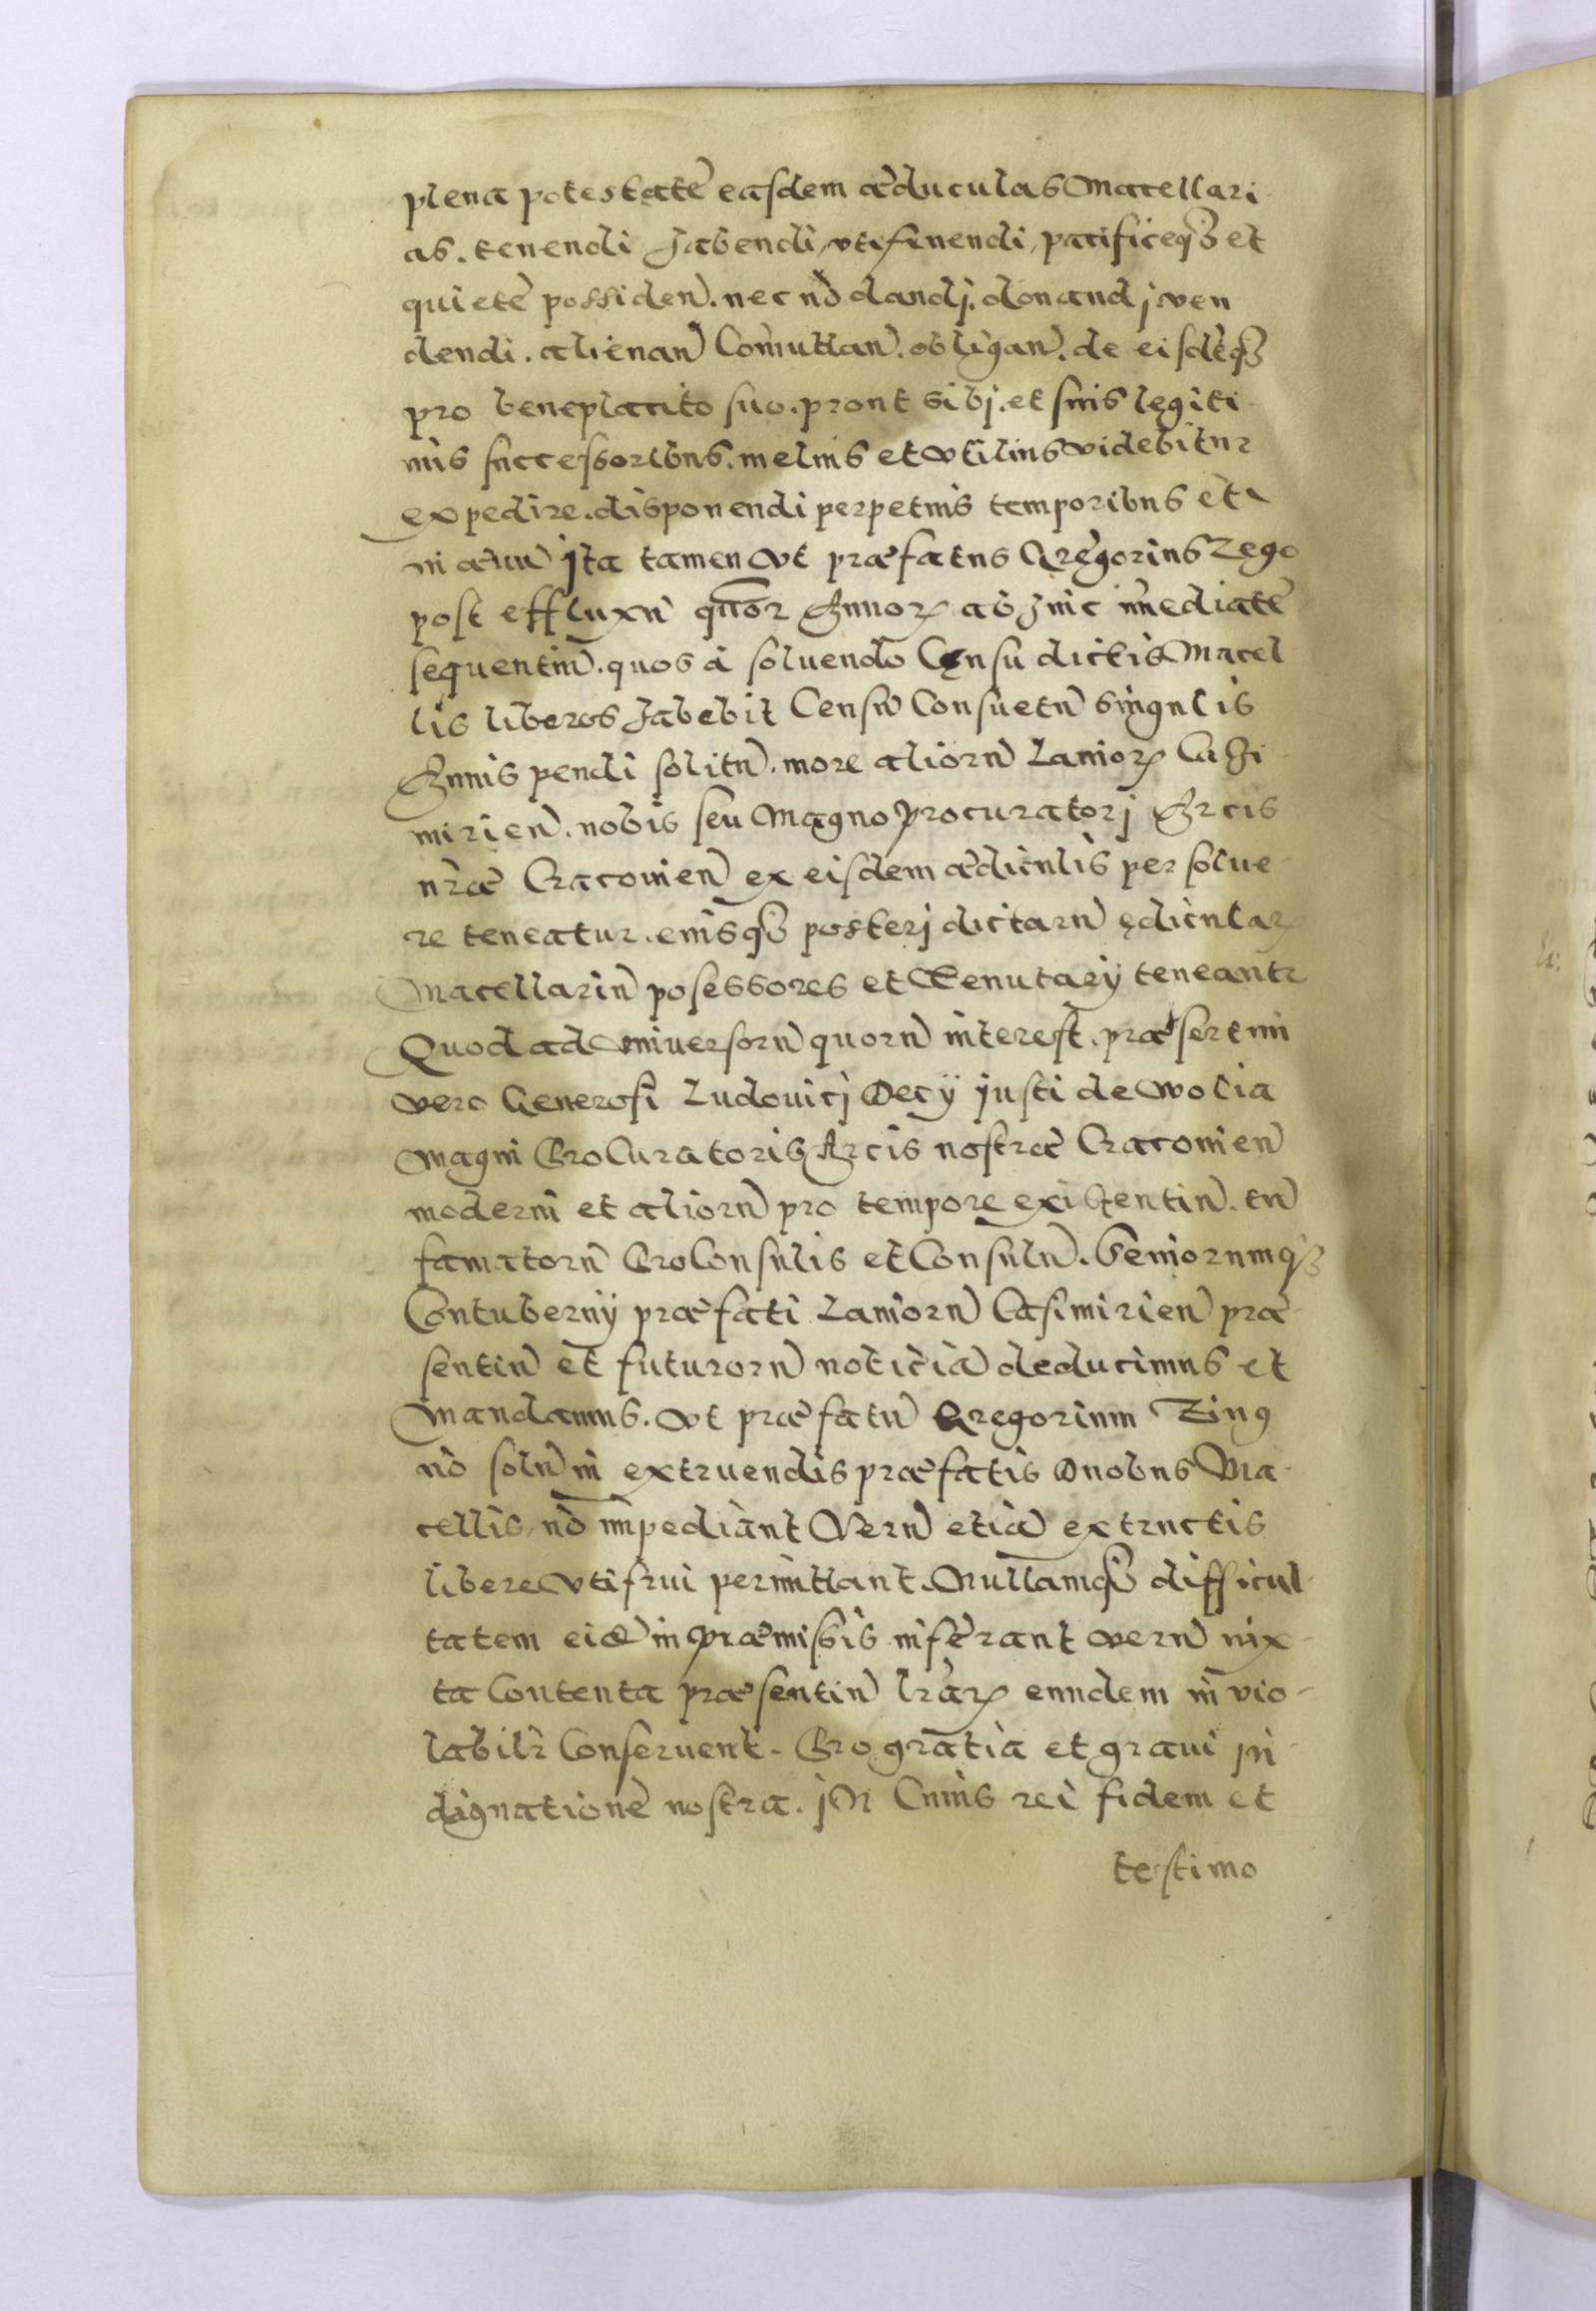 plena potestatē easdem æduculas Macellari-
as. tenendi habendi, vtifruendi, pacificeq₃ et
quietē possiden̄. nec nō dandj. donandj. ven
dendi. alienan̄ Com̄uttan̄. obligan̄. de eisdēq₃
pro beneplacito suo. prout sibj. et suis legiti-
mis successoribus. melius et vtilius videbitur
expedire. disponendi perpetuis temporibus et
in æuū jta tamen vt præfatus Gregorius Zego
post effluxū quōr Annoꝝ ab hinc im̄ediatē
sequentiū. quos à soluendo Censu dictis Macel
lis liberos habebit Censū Consuetū singulis
Annis pendi solitū. more aliorū Lanioꝝ Cazi-
mirien̄. nobis seu Magno Procuratorj Arcis
nr̄æ Cracouien̄ ex eisdem ædiculis persolue-
re teneatur. eiusq₃ posterj dictarū ędiculaꝝ
Macellariū posessores et Tenutarÿ teneantr
Quod ad vniuersorū quorū interest. præsertim
vero Generosi Ludouicj Decÿ justi de Wolia
Magni ProCuratoris Arcis nostræ Cracouien̄
moderni et aliorū pro tempore existentiū. tū
famatorū ProConsulis et Consulū. Seniorumq₃
Contubernÿ præfati Laniorū Casimirien̄ præ-
sentiū et futurorū noticiā deducimus et
Mandamus. vt præfatū Gregorium Zing
nō solū in extruendis præfatis Duobus Ma-
cellis, nō impediant Verū etiā extructis
libere vtifrui permittant. Nullamq₃ difficul-
tatem eid̄ in præmissis inferant verū iux-
ta Contenta præsentiū lr̄aꝝ eundem in vio-
labilr Conseruent. Pro gratia et graui in-
dignationē nostra. jN Cuius rei fidem et
testimo